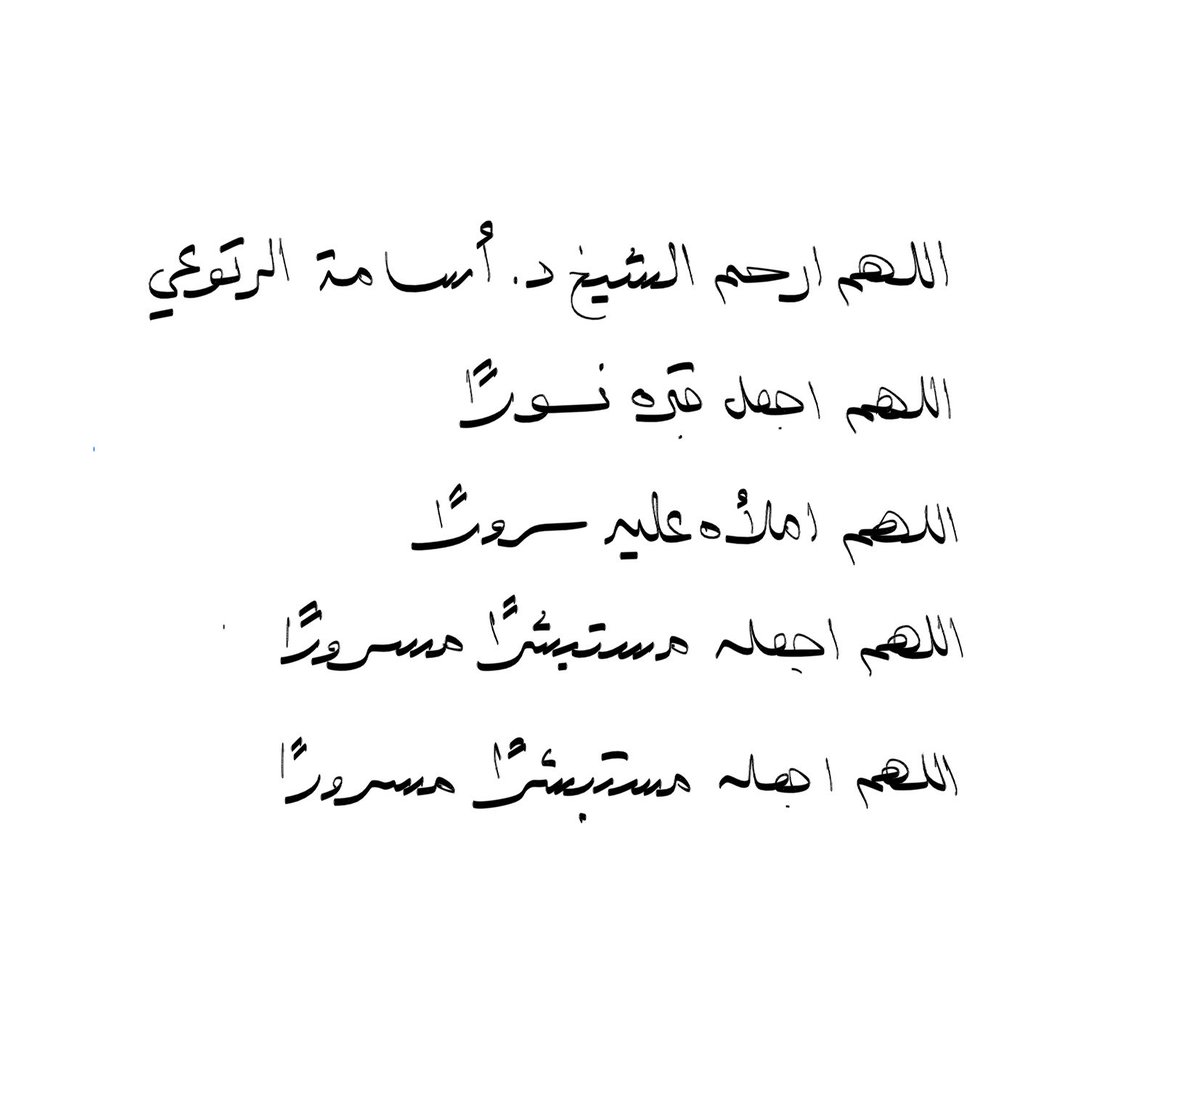 اللهم ارحم الشيخ د. أسامة الرتوعي
اللهم اجعل قبره نورًا
اللهم املأه عليه سرورًا
اللهم اجعله مستبشرًا مسرورًا
اللهم اجعله مستبشرًا مسرورًا